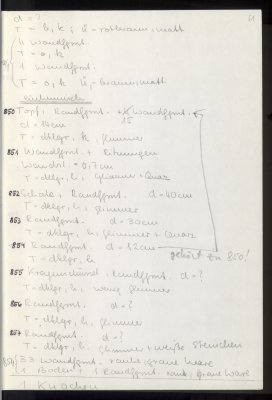 d = ?
T = b, k, ü - rotbraun, matt
4 Wandfgmt.
T = o, k
1 Wandfgmt.
T = o, k ü, - braun, matt
850 Topf, Randfgmt. + Wandfgmt.
15
d = 14cm
T = dklgr, k, glimmer
851 Wandfgmt. + Ritzungen
Wandst. = 0,7cm
T = dklgr, h, Glimmer + Quarz
852 Schale, Randfgmt. d = 40cm
T = dklgr, h, glimmer
853 Randfgmt. d = 30cm
T = dklgr, h, glimmer + Quarz
854 Randfgmt. d = 12cm
gehört zu 850!
T = dklgr, h
855 Randfgmt. d = ?
T = dklgr, h, wenig glimmer
856 Randfgmt. d = ?
T = dklgr, h, glimmer
857 Randfgmt. d = ?
T = dklgr, h, glimmer + weiße Steinchen
33 Wandfgmt. rauhe, graue Ware
1 Boden, 1 Randfgmt. rauh, graue Ware
1 Knochen